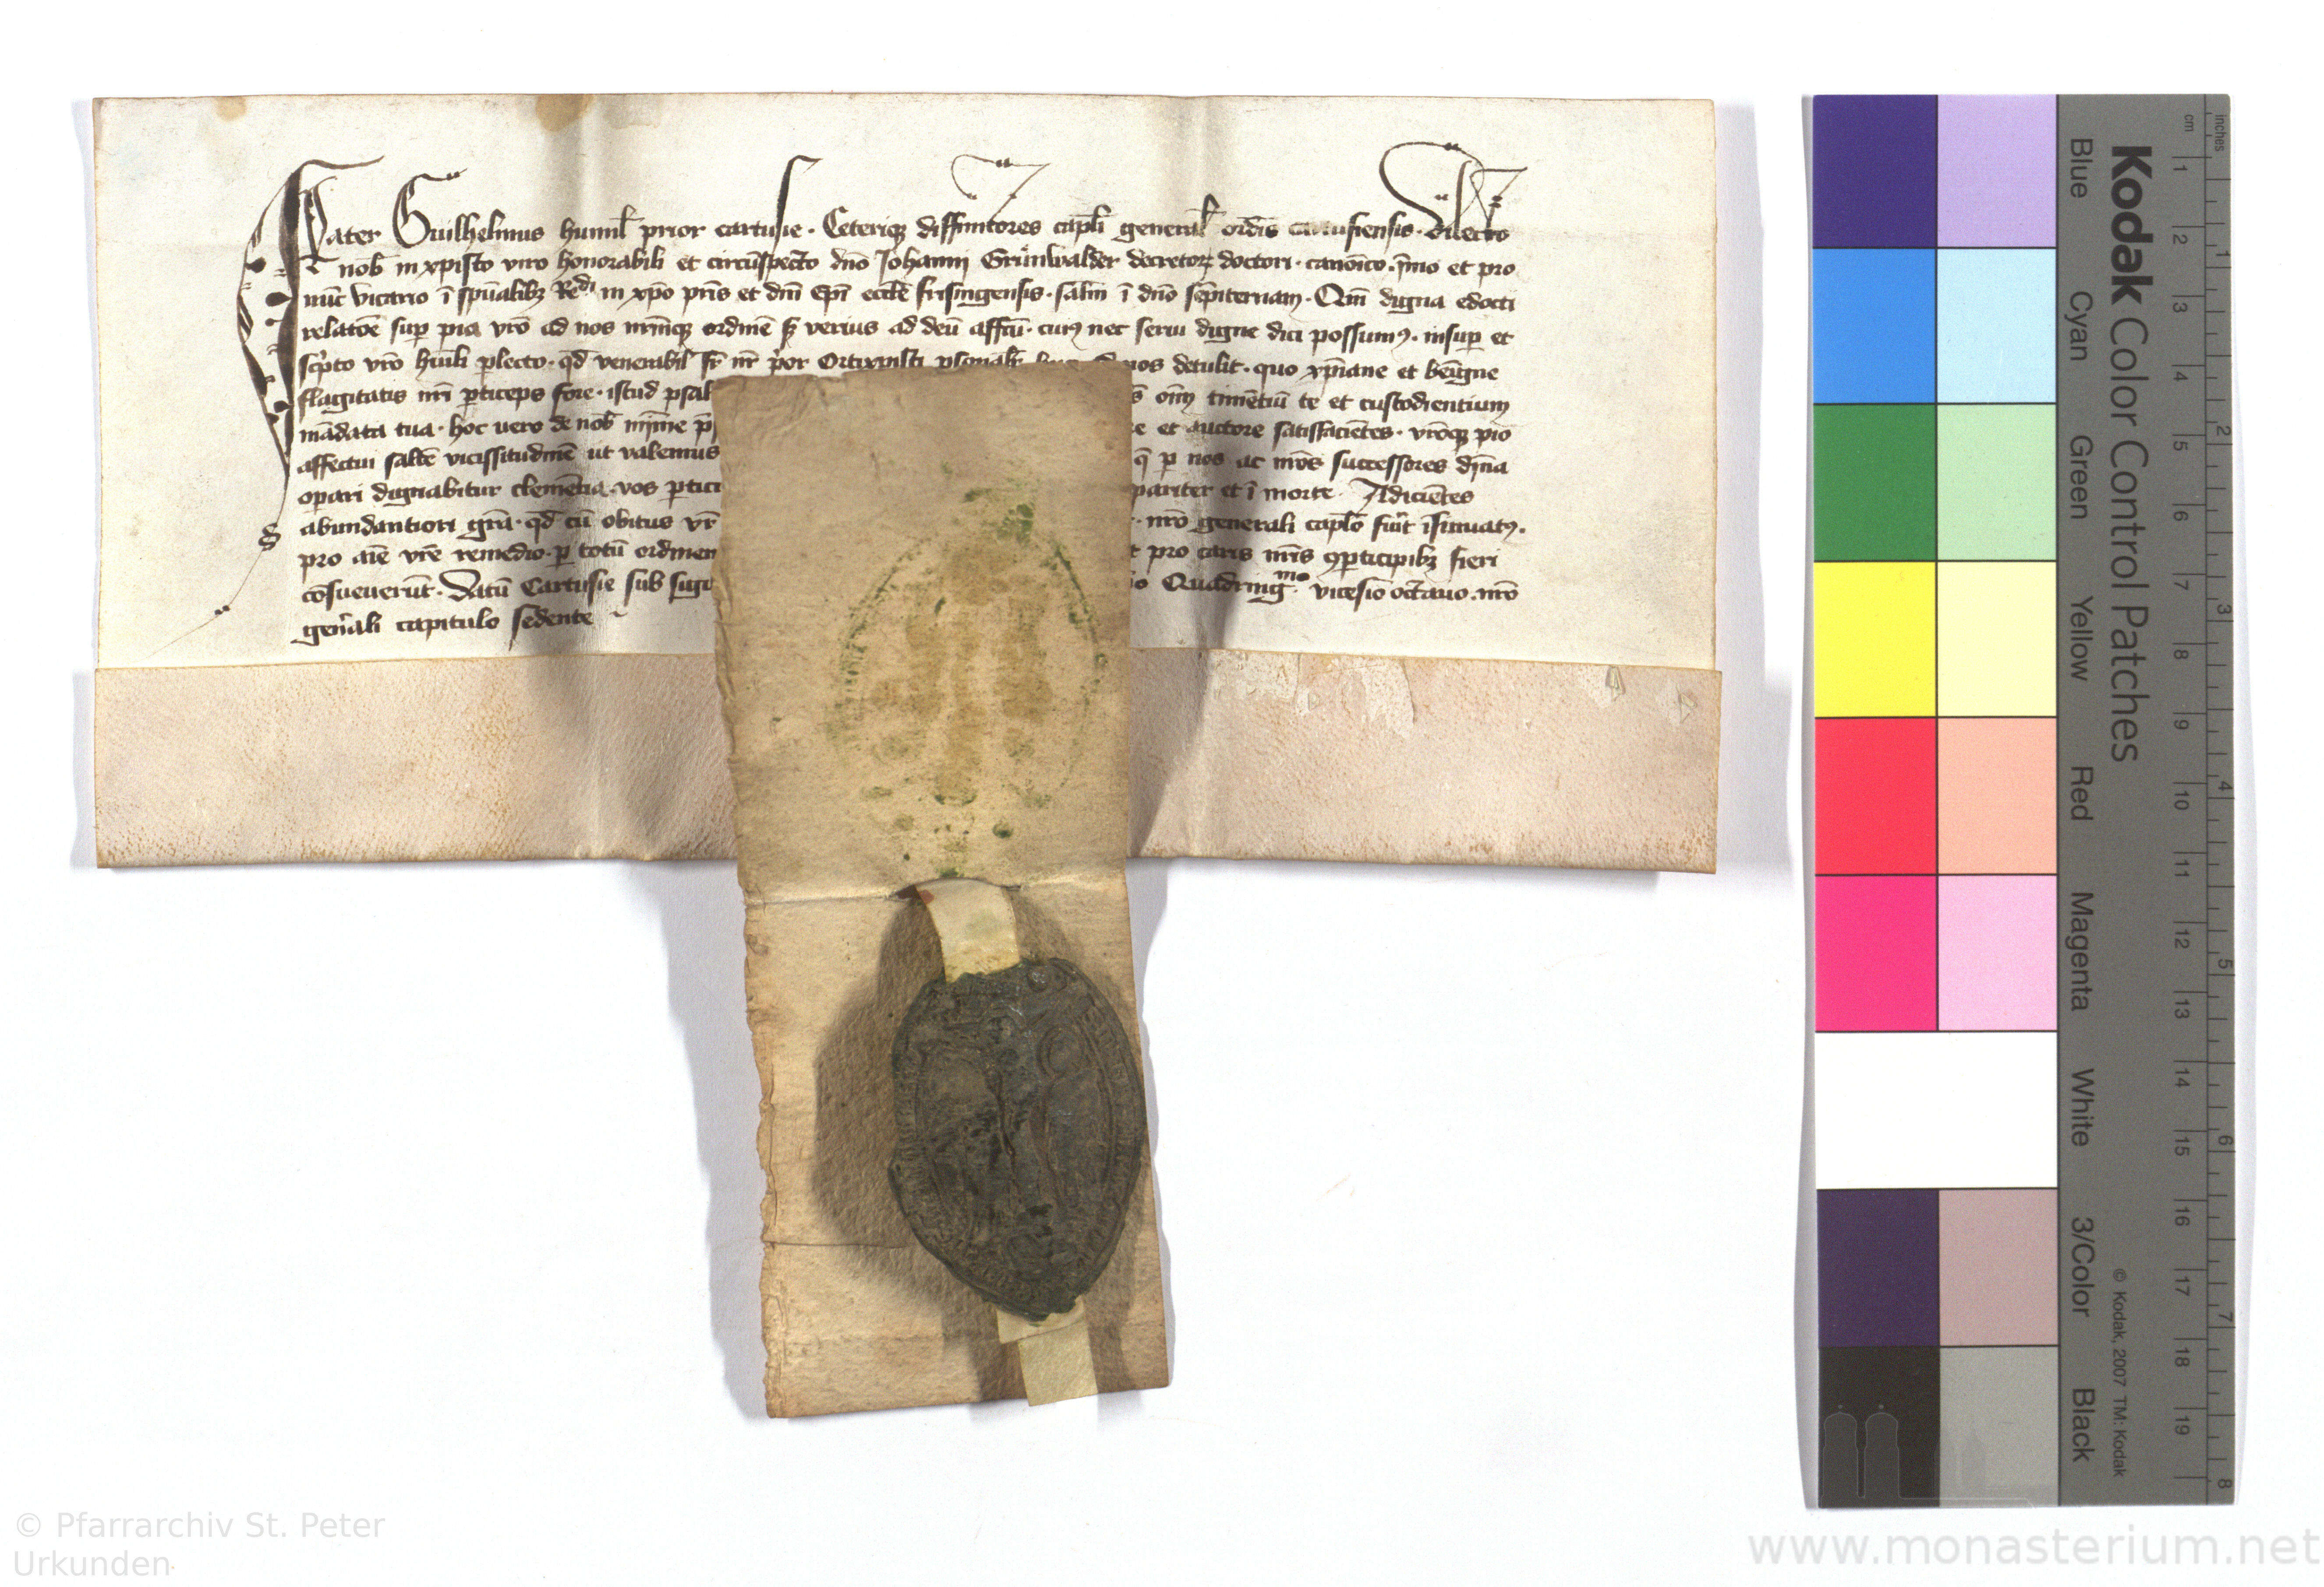 Frater Guilhelmus humil prior cartusie · Ceterique diffinitores capli general ordis cartusiensis · dilecto
nob in xpisto viro honorabili et circūspecto dno Johanni Grünwalder decretor doctori · canoico · īmo et pro
nūc vicario ī spūalibz Redi in xpo pris et dni Epi eccle frisingensis · salm ī dno sēpiternam · Qm digna edocti
relatoe sup pia vro ad nos nrmqz ordinē sz verius ad deū affcu · cuius nec serui digne dici possumus · insup et
scpto vro hūili plecto · qd venerabil fr nr por Ortixpisti psonalr nos detulit · quo xpiane et benigne
flagitatis nri pticeps fore · istud psal oim timētiū te et custodientium
mādata tua · hoc uero de nob mīme et auctore satisfaciētes · vroqz pio
affectui saltē vicissitudinē ut valemus q p nos ac nros successores diuina
opari dignabitur clemētia · vos ptici pariter et ī morte · Adiciētes
abundantiori gra · qd cū obitus vr nro generali caplo fuit īsinuatus ·
pro aie vre remedio · p totū ordinem pro caris nris pticipibz fieri
cōsueuerūt · Datū Cartusie sub sigi Quadringmo vicesio octauo · nro
genali capitulo sedente
Kodak Color Control Patches
Blue Cyan Green Yellow Red Magenta White 3/Color Black
© Kodak, 2007 TM: Kodak
cm 1 2 3 4 5 6 7 8 9 10 11 12 13 14 15 16 17 18 19
inches 1 2 3 4 5 6 7 8
© Pfarrarchiv St. Peter
Urkunden
www.monasterium.net